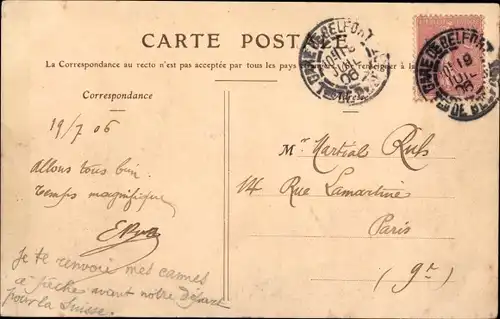 CARTE POSTALE
La Correspondance au recto n'est pas acceptée par tous les pays
Correspondance
19/7 06
Allons tous bien.
Temps magnifique
Je te renvoie mes cannes
à pêche avant notre départ
pour la Suisse.
GARE DE BELFORT
18
JUIL
06
Mr Martial Ruhs
14 Rue Lamartine
Paris
(9e)
GARE DE BELFORT
18
JUIL
06